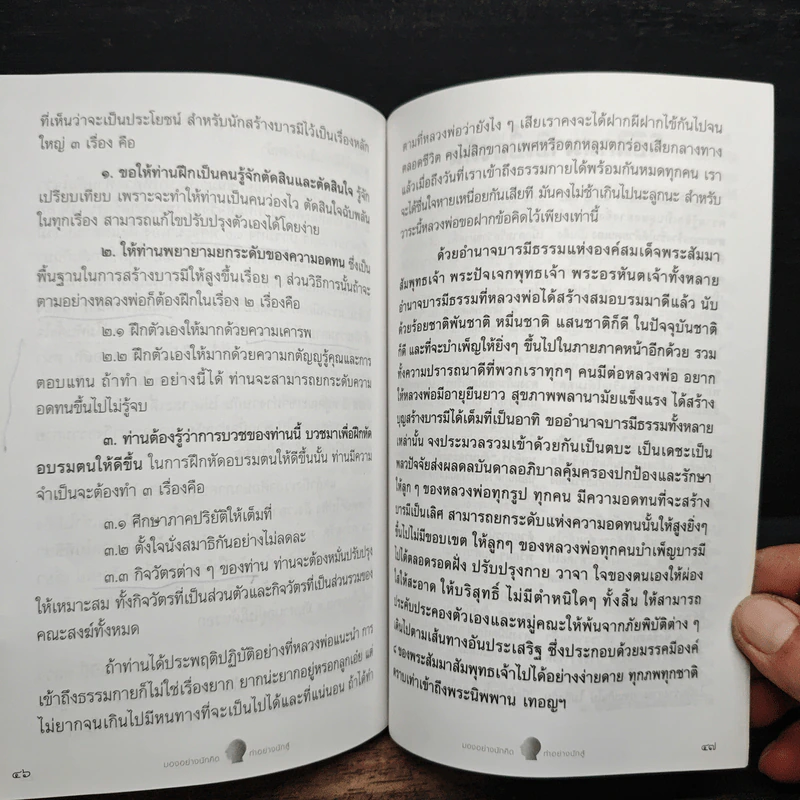 ที่เห็นว่าจะเป็นประโยชน์ สำหรับนักสร้างบารมีไว้เป็นเรื่องหลัก
ใหญ่ ๓ เรื่อง คือ
๑. ขอให้ท่านฝึกเป็นคนรู้จักตัดสินและตัดสินใจ รู้จัก
เปรียบเทียบ เพราะจะทำให้ท่านเป็นคนว่องไว ตัดสินใจฉับพลัน
ในทุกเรื่อง สามารถแก้ไขปรับปรุงตัวเองได้โดยง่าย
๒. ให้ท่านพยายามยกระดับของความอดทน ซึ่งเป็น
พื้นฐานในการสร้างบารมีให้สูงขึ้นเรื่อย ๆ ส่วนวิธีการนั้นถ้าจะ
ตามอย่างหลวงพ่อก็ต้องฝึกในเรื่อง ๒ เรื่องคือ
๒.๑ ฝึกตัวเองให้มากด้วยความเคารพ
๒.๒ ฝึกตัวเองให้มากด้วยความกตัญญูรู้คุณและการ
ตอบแทน ถ้าทำ ๒ อย่างนี้ได้ ท่านจะสามารถยกระดับความ
อดทนขึ้นไปไม่รู้จบ
๓. ท่านต้องรู้ว่าการบวชของท่านนี้ บวชมาเพื่อฝึกหัด
อบรมตนให้ดีขึ้น ในการฝึกหัดอบรมตนให้ดีขึ้นนั้น ท่านมีความ
จำเป็นจะต้องทำ ๓ เรื่องคือ
๓.๑ ศึกษาภาคปริยัติให้เต็มที่
๓.๒ ตั้งใจนั่งสมาธิกันอย่างไม่ลดละ
๓.๓ กิจวัตรต่าง ๆ ของท่าน ท่านจะต้องหมั่นปรับปรุง
ให้เหมาะสม ทั้งกิจวัตรที่เป็นส่วนตัวและกิจวัตรที่เป็นส่วนรวมของ
คณะสงฆ์ทั้งหมด
ถ้าท่านได้ประพฤติปฏิบัติอย่างที่หลวงพ่อแนะนำ การ
เข้าถึงธรรมกายก็ไม่ใช่เรื่องยาก ยากน่ะยากอยู่หรอกลูกเอ่ย แต่
ไม่ยากจนเกินไปมีหนทางที่จะเป็นไปได้และที่แน่นอน ถ้าได้ทำ
มองอย่างนักคิด ทำอย่างนักสู้
๔๖
ตามที่หลวงพ่อว่ายังไง ๆ เสียเราคงจะได้ฝากผีฝากไข้กันไปจน
ตลอดชีวิต คงไม่สิกขาลาเพศหรือตกหลุมตกร่องเสียกลางทาง
แล้วเมื่อถึงวันที่เราเข้าถึงธรรมกายได้พร้อมกันหมดทุกคน เรา
จะได้ชื่นใจหายเหนื่อยกันเสียที มันคงไม่ช้าเกินไปนะลูกนะ สำหรับ
วาระนี้หลวงพ่อขอฝากข้อคิดไว้เพียงเท่านี้
ด้วยอำนาจบารมีธรรมแห่งองค์สมเด็จพระสัมมา
สัมพุทธเจ้า พระปัจเจกพุทธเจ้า พระอรหันตเจ้าทั้งหลาย
อำนาจบารมีธรรมที่หลวงพ่อได้สร้างสมอบรมมาดีแล้ว นับ
ด้วยร้อยชาติพันชาติ หมื่นชาติ แสนชาติก็ดี ในปัจจุบันชาติ
ก็ดี และที่จะบำเพ็ญให้ยิ่งๆ ขึ้นไปในภายภาคหน้าอีกด้วย รวม
ทั้งความปรารถนาดีที่พวกเราทุกๆ คนมีต่อหลวงพ่อ อยาก
ให้หลวงพ่อมีอายุยืนยาว สุขภาพพลานามัยแข็งแรง ได้สร้าง
บุญสร้างบารมีได้เต็มที่เป็นอาทิ ขออำนาจบารมีธรรมทั้งหลาย
เหล่านั้น จงประมวลรวมเข้าด้วยกันเป็นตบะ เป็นเดชะเป็น
พลวปัจจัยส่งผลดลบันดาลอภิบาลคุ้มครองปกป้องและรักษา
ให้ลูก ๆ ของหลวงพ่อทุกรูป ทุกคน มีความอดทนที่จะสร้าง
บารมีเป็นเลิศ สามารถยกระดับแห่งความอดทนนั้นให้สูงยิ่งๆ
ขึ้นไปไม่มีขอบเขต ให้ลูกๆ ของหลวงพ่อทุกคนบำเพ็ญบารมี
ไปได้ตลอดรอดฝั่ง ปรับปรุงกาย วาจา ใจของตนเองให้ผ่อง
ใสให้สะอาด ให้บริสุทธิ์ ไม่มีตำหนิใดๆ ทั้งสิ้น ให้สามารถ
ประคับประคองตัวเองและหมู่คณะให้พ้นจากภัยพิบัติต่าง ๆ
เดินไปตามเส้นทางอันประเสริฐ ซึ่งประกอบด้วยมรรคมีองค์
๘ ของพระสัมมาสัมพุทธเจ้าไปได้อย่างง่ายดาย ทุกภพทุกชาติ
ตราบเท่าเข้าถึงพระนิพพาน เทอญฯ
มองอย่างนักคิด ทำอย่างนักสู้
๔๗